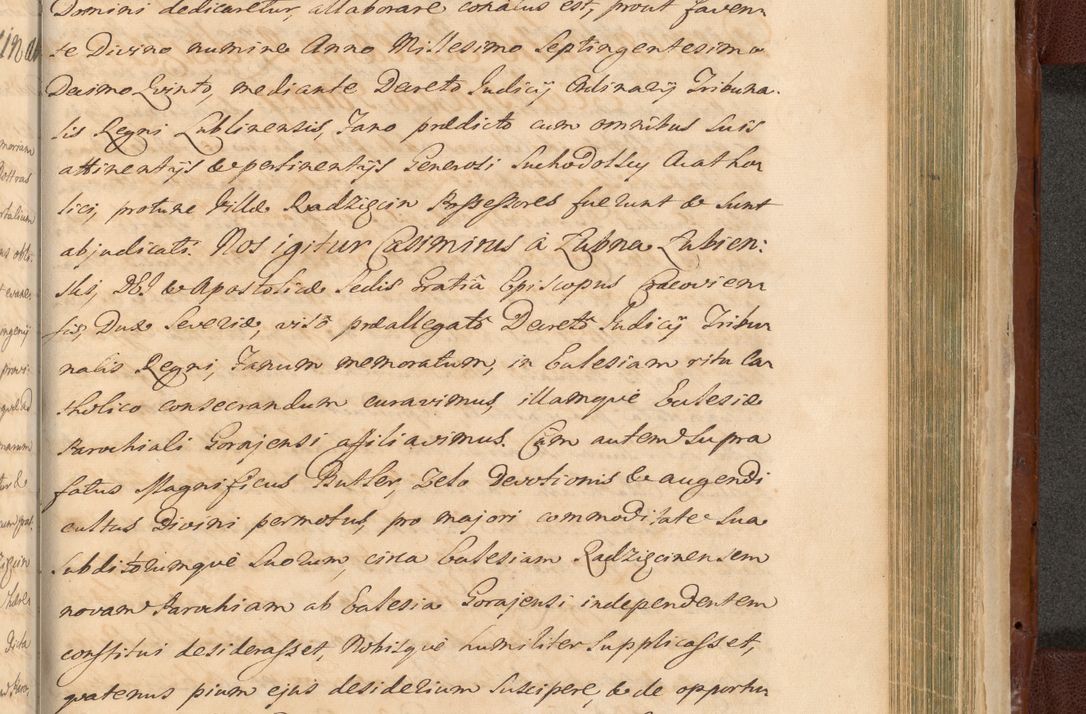 Domini dedicaretur, allaborare conatus est, prout faven
te Divino numine Anno Millesimo Septingentesimo
Decimo Quinto, mediante Decreto Judicij Ordinarij Tribuna
lis Regni Lublinensis, Fano prædicto cum omnibus suis
attinentijs & pertinentijs Generosi Suchodolscy Acatho
lici, protunc Villæ Radzięcin Possessores fuerunt & sunt
abjudicati. Nos igitur Casimirus à Łubna Łubien:
ski, DEI & Apostolicæ Sedis Gratiâ Episcopus Cracovien
sis, Dux Severiæ, visô præallegatô Decretô Judicij Tribu
nalis Regni, Fanum memoratum, in Ecclesiam ritu Ca
tholico consecrandum curavimus, illamquè Ecclesiæ
Parochiali Gorajensi affiliavimus. Cùm autem supra
fatus Magnificus Butler, Zelo devotionis & augendi
cultus Divini permotus, pro majori commoditate sua
subditorumquè suorum, circa Ecclesiam Radzięcinensem
novam Parochiam ab Ecclesia Gorajensi independentem
constitui desiderasset, Nobisquè humiliter supplicasset,
quatenus pium ejus desiderium suscipere, & de opportu